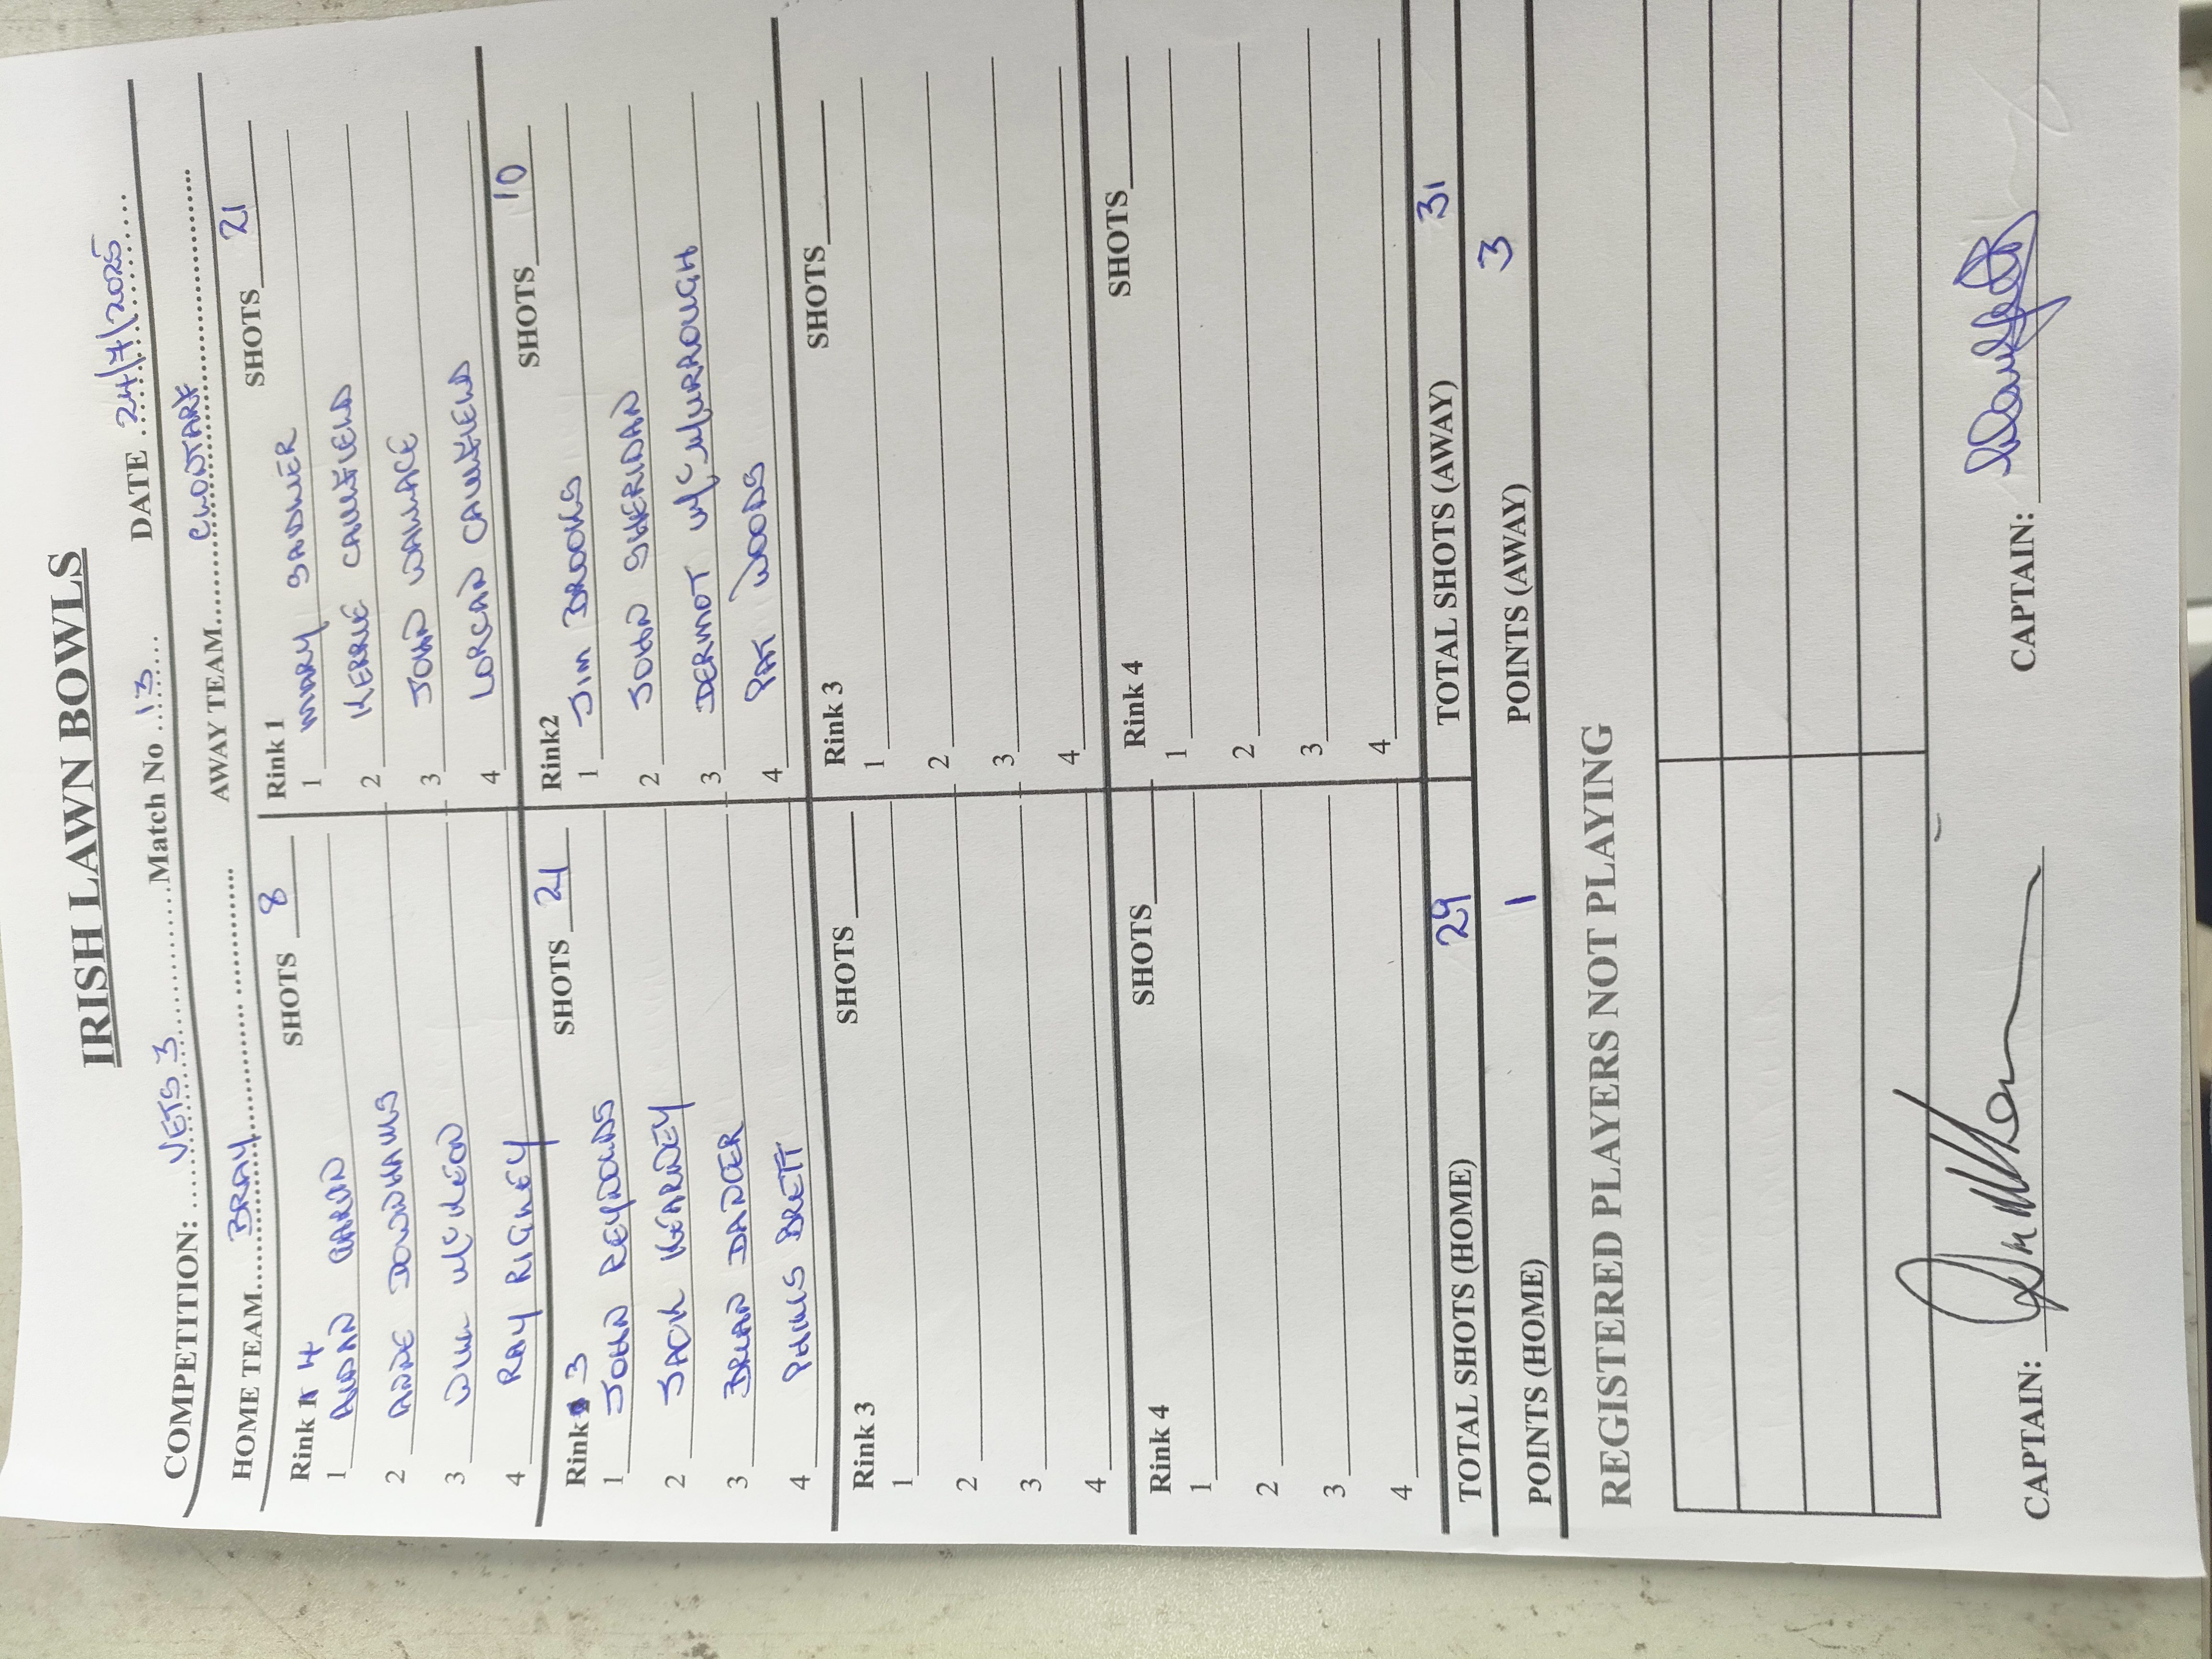 IRISH LAWN BOWLS
COMPETITION: ......VETS 3..................Match No ..13..... DATE ..24/7/2025.....
HOME TEAM....BRAY.......................... AWAY TEAM........CLONTARF......................
Rink 4 SHOTS 8
1 AIDAN
2 ANNE DOWNHAMS
3 WILL McKEON
4 RAY RIGNEY
Rink 1 SHOTS 21
1 MARY SADLIER
2 KERRIE CAULFIELD
3 JOHN WALLACE
4 LORCAN CAULFIELD
Rink 3 SHOTS 21
1 JOHN REYNOLDS
2 JACK KEARNEY
3 BRIAN DANCER
4 PHILIS BRETT
Rink2 SHOTS 10
1 JIM BROOKS
2 JOHN SHERIDAN
3 DERMOT McMURROUGH
4 PAT WOODS
Rink 3 SHOTS
1
2
3
4
Rink 3 SHOTS
1
2
3
4
Rink 4 SHOTS
1
2
3
4
Rink 4 SHOTS
1
2
3
4
TOTAL SHOTS (HOME) 29 TOTAL SHOTS (AWAY) 31
POINTS (HOME) 1 POINTS (AWAY) 3
REGISTERED PLAYERS NOT PLAYING
CAPTAIN: CAPTAIN: